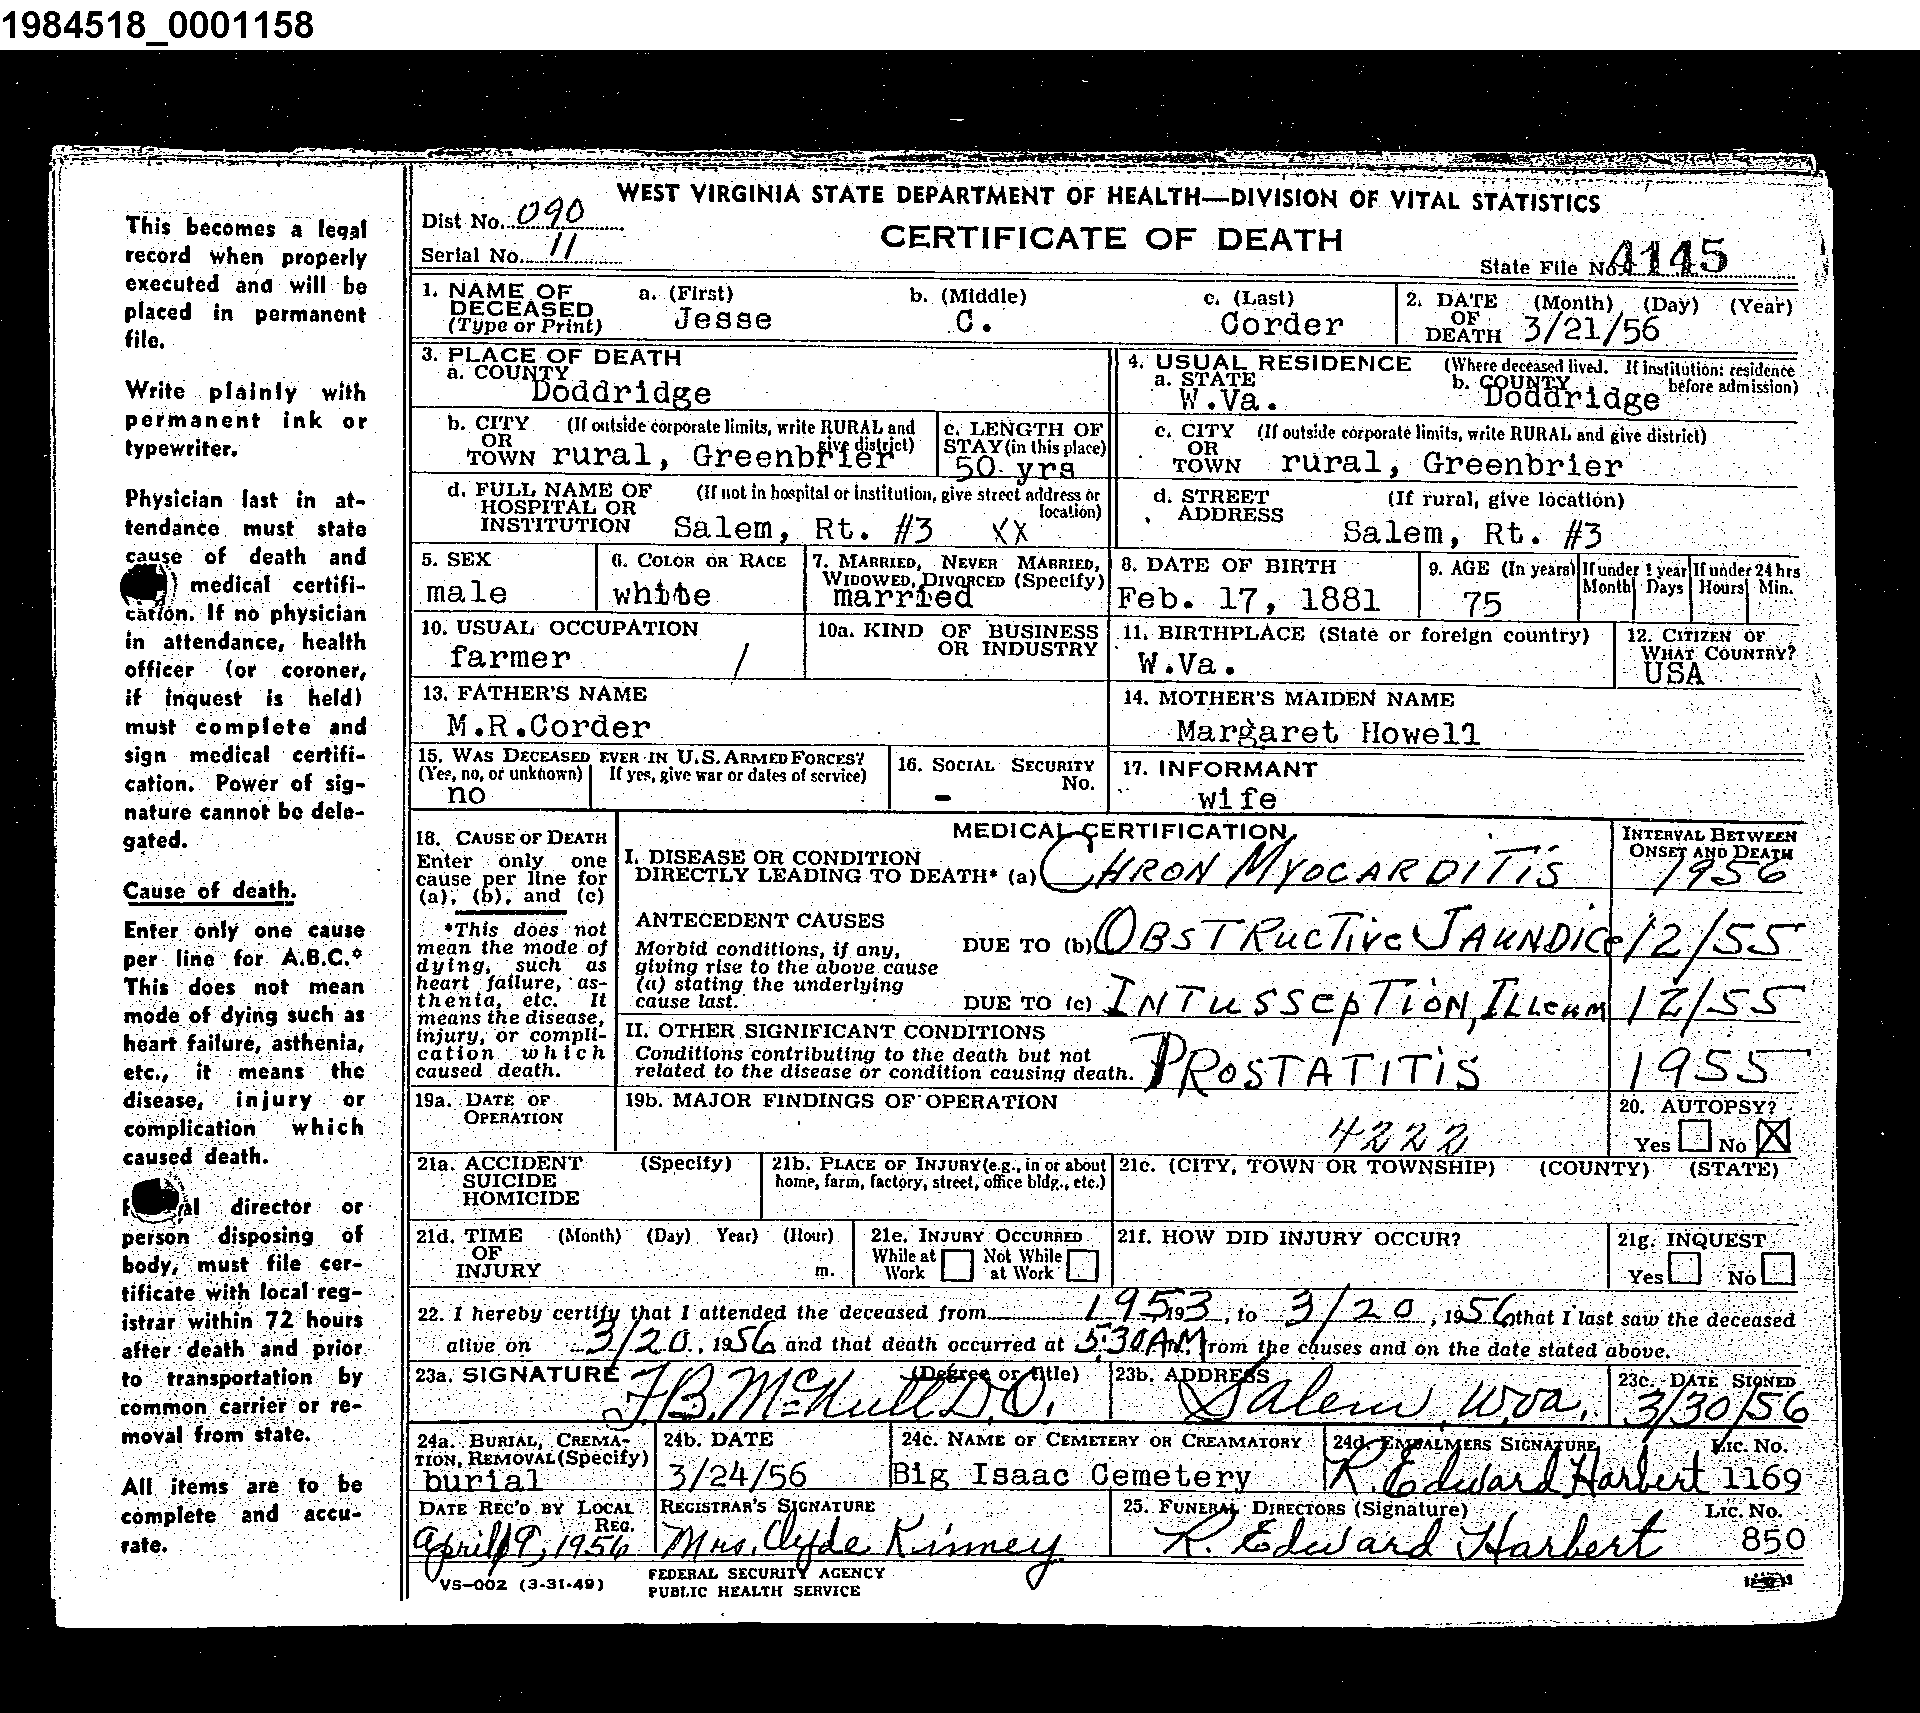 1984518_0001158
WEST VIRGINIA STATE DEPARTMENT OF HEALTH—DIVISION OF VITAL STATISTICS
Dist No. 090
CERTIFICATE OF DEATH
Serial No. 11
State File No. 4145
This becomes a legal
record when properly
executed and will be
placed in permanent
file.
Write plainly with
permanent ink or
typewriter.
Physician last in at-
tendance must state
cause of death and
medical certifi-
cation. If no physician
in attendance, health
officer (or coroner,
if inquest is held)
must complete and
sign medical certifi-
cation. Power of sig-
nature cannot be dele-
gated.
Cause of death.
Enter only one cause
per line for A.B.C.*
This does not mean
mode of dying such as
heart failure, asthenia,
etc., it means the
disease, injury or
complication which
caused death.
director or
person disposing of
body, must file cer-
tificate with local reg-
istrar within 72 hours
after death and prior
to transportation by
common carrier or re-
moval from state.
All items are to be
complete and accu-
rate.
1. NAME OF DECEASED (Type or Print)
a. (First) Jesse
b. (Middle) C.
c. (Last) Corder
2. DATE OF DEATH (Month) (Day) (Year) 3/21/56
3. PLACE OF DEATH
a. COUNTY Doddridge
4. USUAL RESIDENCE (Where deceased lived. If institution: residence before admission)
a. STATE W.Va.
b. COUNTY Doddridge
b. CITY OR TOWN (If outside corporate limits, write RURAL and give district) rural, Greenbrier
c. LENGTH OF STAY (in this place) 50 yrs
c. CITY OR TOWN (If outside corporate limits, write RURAL and give district) rural, Greenbrier
d. FULL NAME OF HOSPITAL OR INSTITUTION (If not in hospital or institution, give street address or location) Salem, Rt. #3 XX
d. STREET ADDRESS (If rural, give location) Salem, Rt. #3
5. SEX male
6. COLOR OR RACE white
7. MARRIED, NEVER MARRIED, WIDOWED, DIVORCED (Specify) married
8. DATE OF BIRTH Feb. 17, 1881
9. AGE (In years) 75
If under 1 year Month Days
If under 24 hrs Hours Min.
10. USUAL OCCUPATION farmer /
10a. KIND OF BUSINESS OR INDUSTRY
11. BIRTHPLACE (State or foreign country) W.Va.
12. CITIZEN OF WHAT COUNTRY? USA
13. FATHER'S NAME M.R.Corder
14. MOTHER'S MAIDEN NAME Margaret Howell
15. WAS DECEASED EVER IN U.S. ARMED FORCES?
(Yes, no, or unknown) no
If yes, give war or dates of service)
16. SOCIAL SECURITY No. -
17. INFORMANT wife
18. CAUSE OF DEATH
Enter only one
cause per line for
(a), (b), and (c)
*This does not
mean the mode of
dying, such as
heart failure, as-
thenia, etc. It
means the disease,
injury, or compli-
cation which
caused death.
MEDICAL CERTIFICATION
INTERVAL BETWEEN ONSET AND DEATH
I. DISEASE OR CONDITION
DIRECTLY LEADING TO DEATH* (a) CHRON MYOCARDITIS 1956
ANTECEDENT CAUSES
Morbid conditions, if any,
giving rise to the above cause
(a) stating the underlying
cause last.
DUE TO (b) OBSTRUCTIVE JAUNDICE 12/55
DUE TO (c) INTUSSEPTION, ILLEUM 12/55
II. OTHER SIGNIFICANT CONDITIONS
Conditions contributing to the death but not
related to the disease or condition causing death. PROSTATITIS 1955
19a. DATE OF OPERATION
19b. MAJOR FINDINGS OF OPERATION
4222
20. AUTOPSY?
Yes No X
21a. ACCIDENT SUICIDE HOMICIDE (Specify)
21b. PLACE OF INJURY (e.g., in or about home, farm, factory, street, office bldg., etc.)
21c. (CITY, TOWN OR TOWNSHIP) (COUNTY) (STATE)
21d. TIME OF INJURY (Month) (Day) Year) (Hour) m.
21e. INJURY OCCURRED
While at Work Not While at Work
21f. HOW DID INJURY OCCUR?
21g. INQUEST
Yes No
22. I hereby certify that I attended the deceased from 1953 193, to 3/20, 1956 that I last saw the deceased
alive on 3/20, 1956 and that death occurred at 5:30 AM m., from the causes and on the date stated above.
23a. SIGNATURE (Degree or title) F.B. McNull D.O.
23b. ADDRESS Salem, W.Va.
23c. DATE SIGNED 3/30/56
24a. BURIAL, CREMATION, REMOVAL (Specify) burial
24b. DATE 3/24/56
24c. NAME OF CEMETERY OR CREAMATORY Big Isaac Cemetery
24d. EMBALMERS SIGNATURE R. Edward Harbert Lic. No. 1169
DATE REC'D BY LOCAL REG. April 9, 1956
REGISTRAR'S SIGNATURE Mrs. Clyde Kinney
25. FUNERAL DIRECTORS (Signature) R. Edward Harbert Lic. No. 850
VS-002 (3-31-49)
FEDERAL SECURITY AGENCY
PUBLIC HEALTH SERVICE